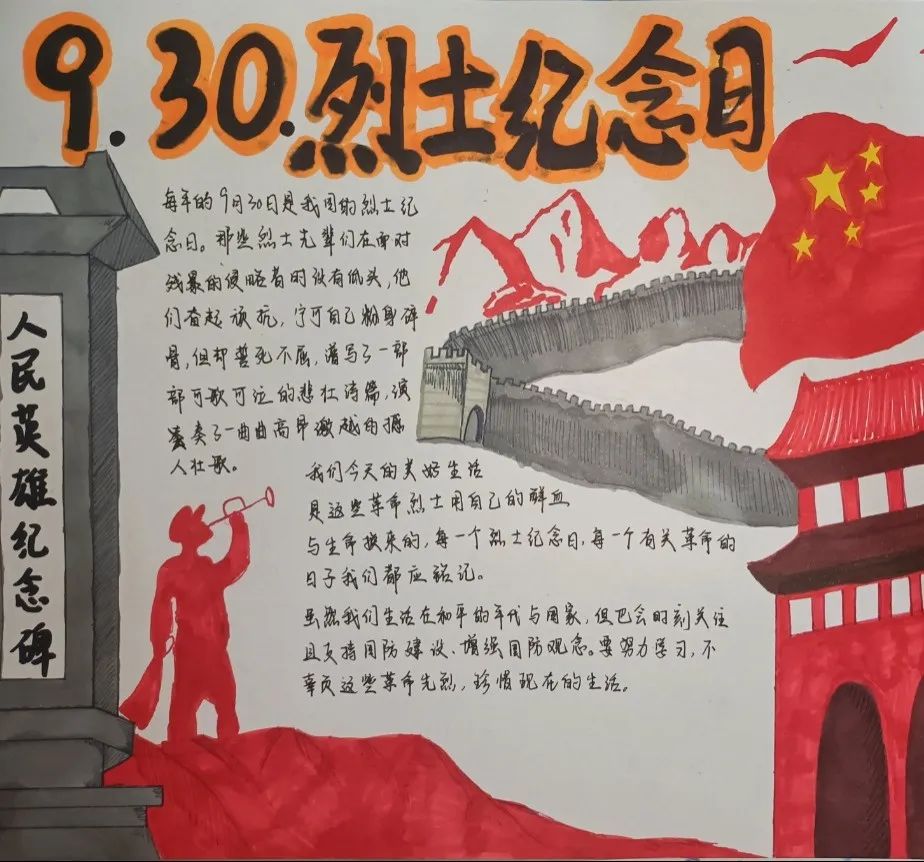 9.30.烈士纪念日
每年的9月30日是我国的烈士纪
念日。那些烈士先辈们在面对
残暴的侵略者时没有低头，他
们奋起顽抗，宁可自己粉身碎
骨，但却誓死不屈，谱写了一部
部可歌可泣的悲壮诗篇，演
奏了一曲曲高昂激越的撼
人壮歌。
我们今天的美好生活
是这些革命烈士用自己的鲜血
与生命换来的，每一个烈士纪念日，每一个有关革命的
日子我们都应铭记。
虽然我们生活在和平的年代与国家，但也会时刻关注
且支持国防建设、增强国防观念。要努力学习，不
辜负这些革命先烈，珍惜现在的生活。
人民英雄纪念碑